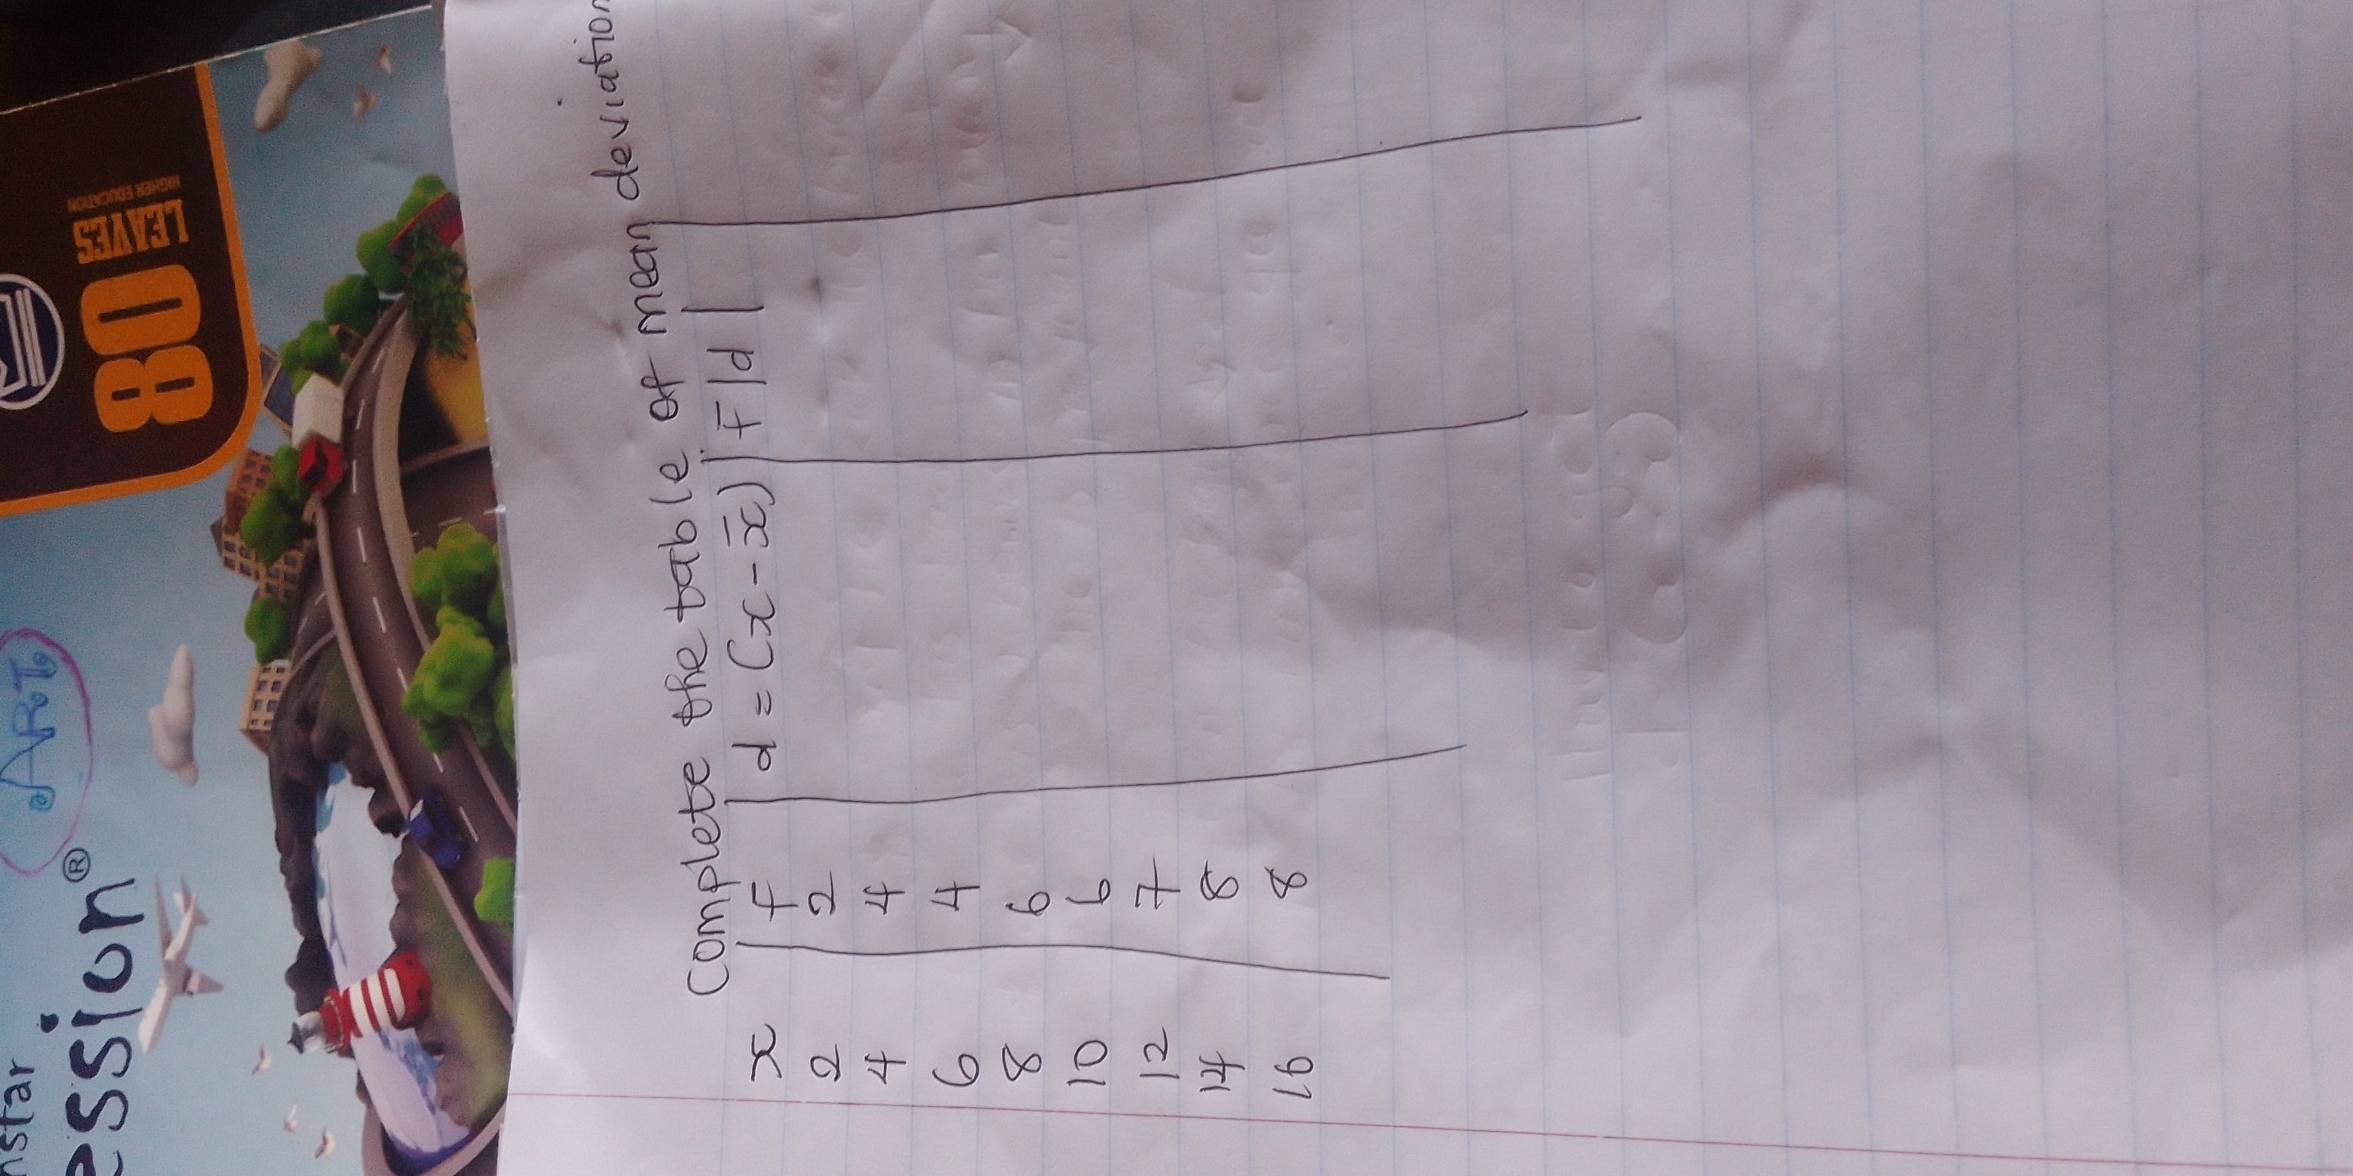 nstar
ession®
ART
80
LEAVES
HIGHER EDUCATION
complete the table of mean deviation
x | f | d = (x - x̄) | F|d|
2 2
4 4
6 4
8 6
10 6
12 7
14 8
16 8